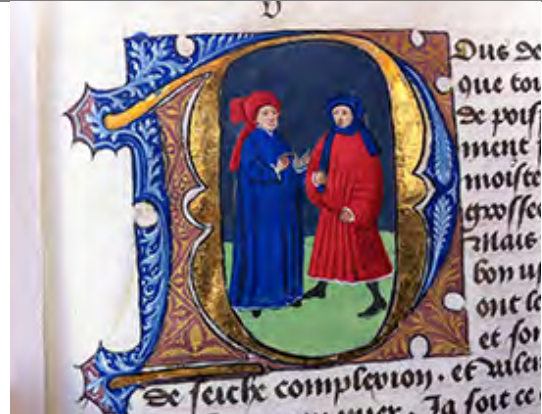 v
Ous de
que tou
de poiſ
ment
moiſte
groſſe
Mais
bon uſ
ont le
et ſon
de ſeiche complexion . et valen
Ja ſoit ce